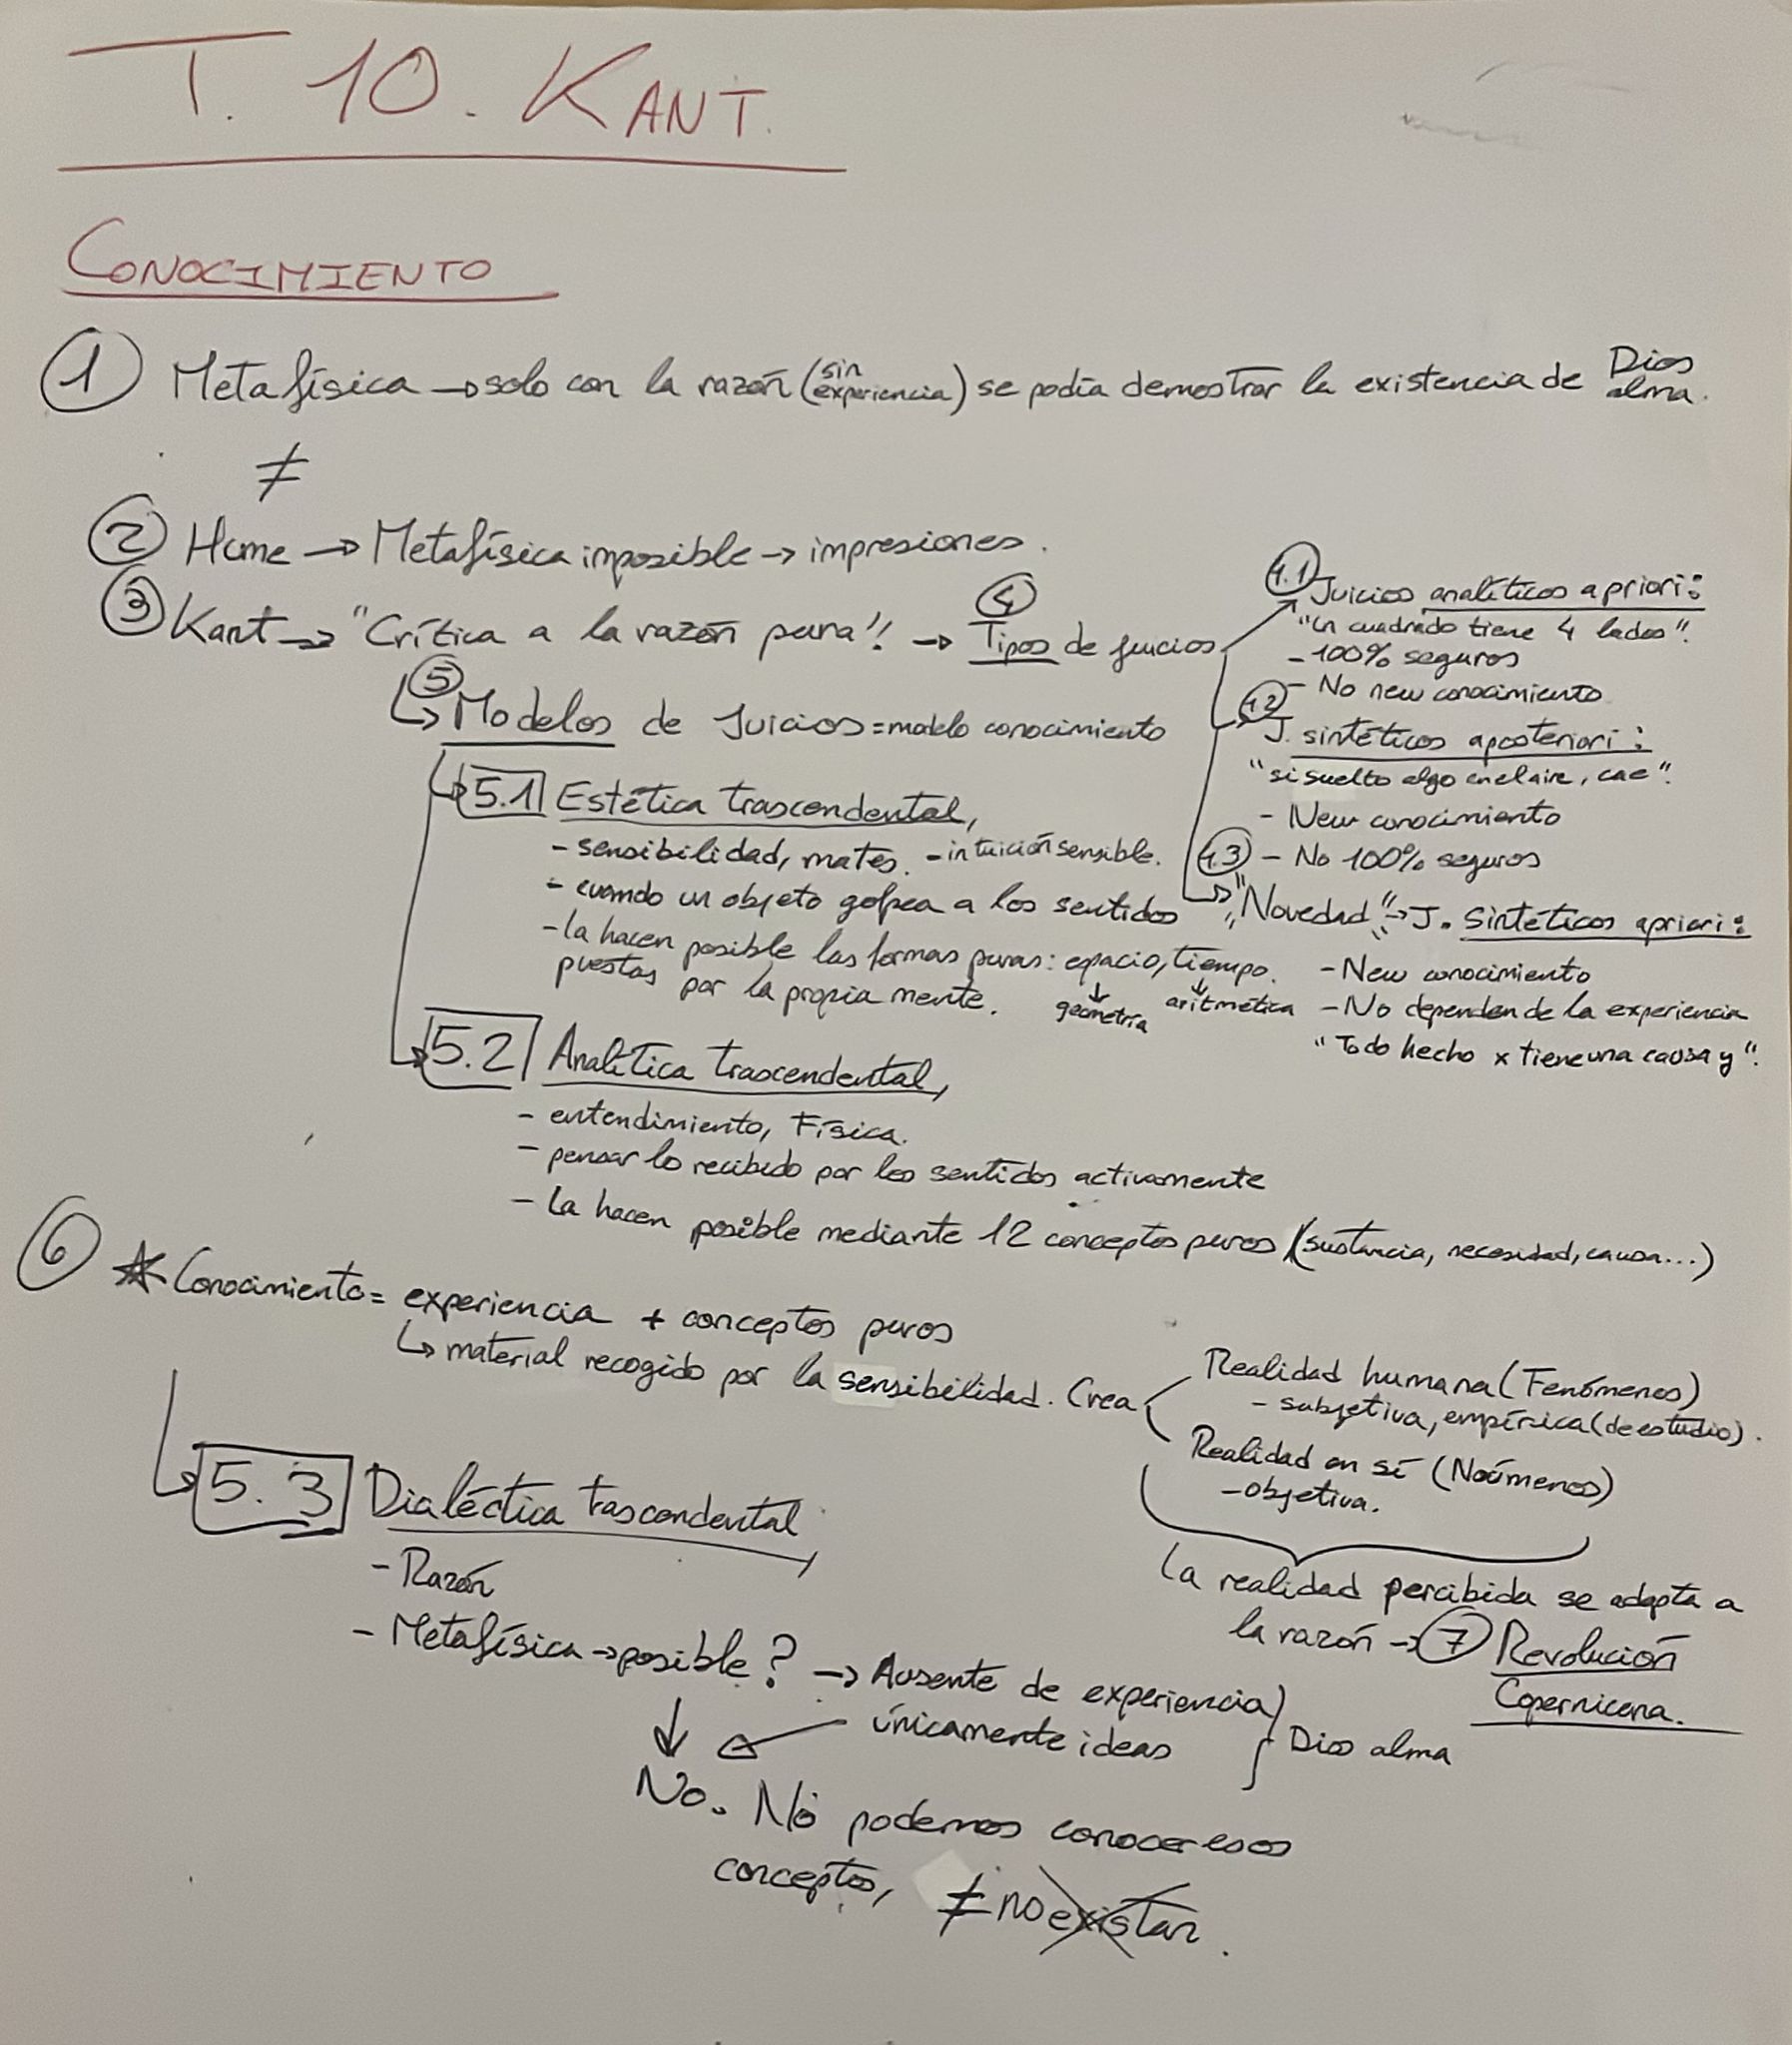 T. 10. KANT.
CONOCIMIENTO
① Metafísica → solo con la razón (sin experiencia) se podía demostrar la existencia de Dios alma.
≠
② Hume → Metafísica imposible → impresiones.
③ Kant → "Crítica a la razón pura" → ④ Tipos de juicios
4.1 Juicios analíticos a priori:
"Un cuadrado tiene 4 lados".
- 100% seguros
- No new conocimiento
4.2 J. sintéticos aposteriori:
"si suelto algo en el aire, cae".
- New conocimiento
- No 100% seguros
4.3 "Novedad" → J. Sintéticos apriori:
- New conocimiento
- No dependen de la experiencia
"Todo hecho x tiene una causa y".
⑤ Modelos de Juicios = modelo conocimiento
5.1 Estética trascendental,
- sensibilidad, mates. - intuición sensible.
- cuando un objeto golpea a los sentidos
- la hacen posible las formas puras: espacio, tiempo.
puestas por la propia mente. ↓ geometría ↓ aritmética
5.2 Analítica trascendental,
- entendimiento, Física.
- pensar lo recibido por los sentidos activamente
- La hacen posible mediante 12 conceptos puros (sustancia, necesidad, causa...)
⑥ * Conocimiento = experiencia + conceptos puros
↳ material recogido por la sensibilidad. Crea
Realidad humana (Fenómenos)
- subjetiva, empírica (de estudio).
Realidad en sí (Noúmenos)
- objetiva.
La realidad percibida se adapta a
la razón → ⑦ Revolución
Copernicana.
5.3 Dialéctica trascendental
- Razón
- Metafísica → posible? → Ausente de experiencia
únicamente ideas } Dios alma
No. No podemos conocer esos
conceptos, ≠ no existan.